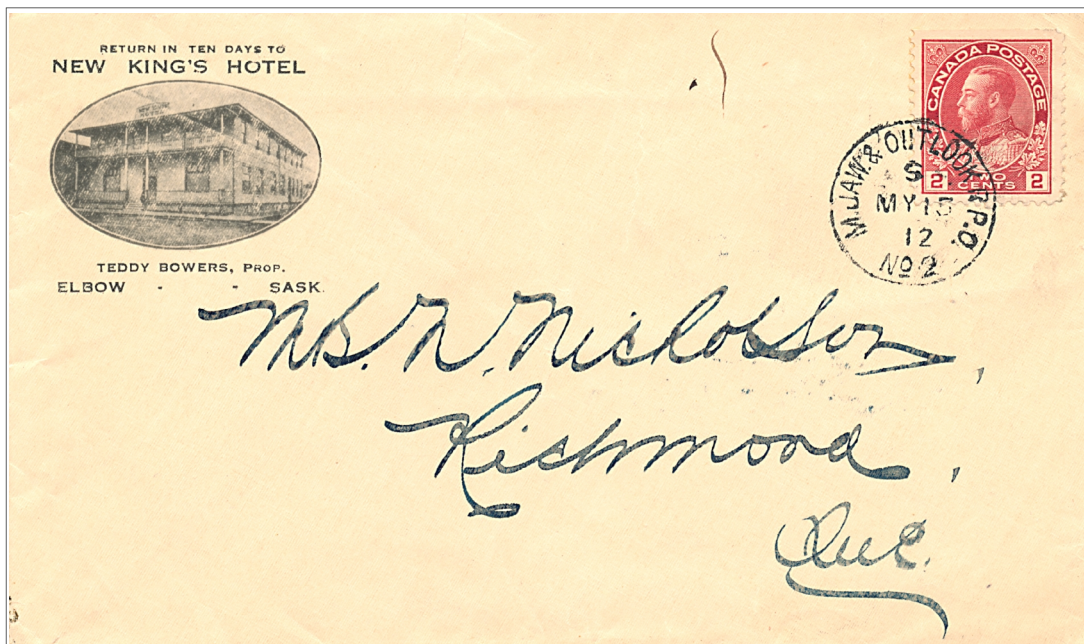 RETURN IN TEN DAYS TO
NEW KING'S HOTEL
TEDDY BOWERS, PROP.
ELBOW - - SASK.
CANADA POSTAGE
2 TWO CENTS 2
M.JAW.& OUTLOOK R.P.O.
S
MY 15
12
No 2
N. Nicholson,
Richmond,
Que.